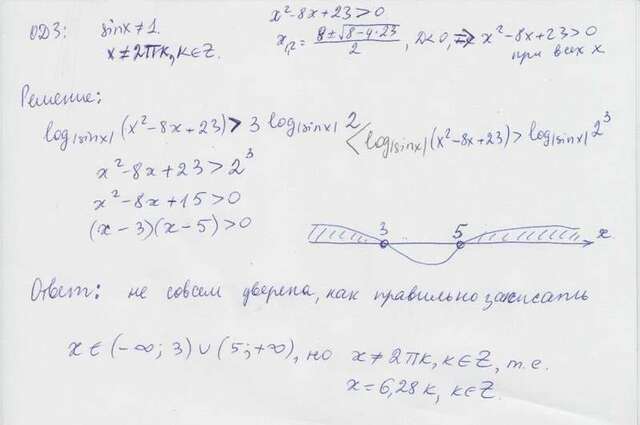 ОДЗ: sinx≠1.
x≠2πk, k∈Z.
x²-8x+23>0
x₁,₂ = (8±√(8-4·23))/2, D<0, => x²-8x+23>0
при всех x
Решение:
log|sinx|(x²-8x+23) > 3 log|sinx| 2 < log|sinx|(x²-8x+23) > log|sinx| 2³
x²-8x+23>2³
x²-8x+15>0
(x-3)(x-5)>0
3 5 x
Ответ: не совсем уверена, как правильно записать
x∈(-∞; 3)∪(5; +∞), но x≠2πk, k∈Z, т.е.
x=6,28k, k∈Z.